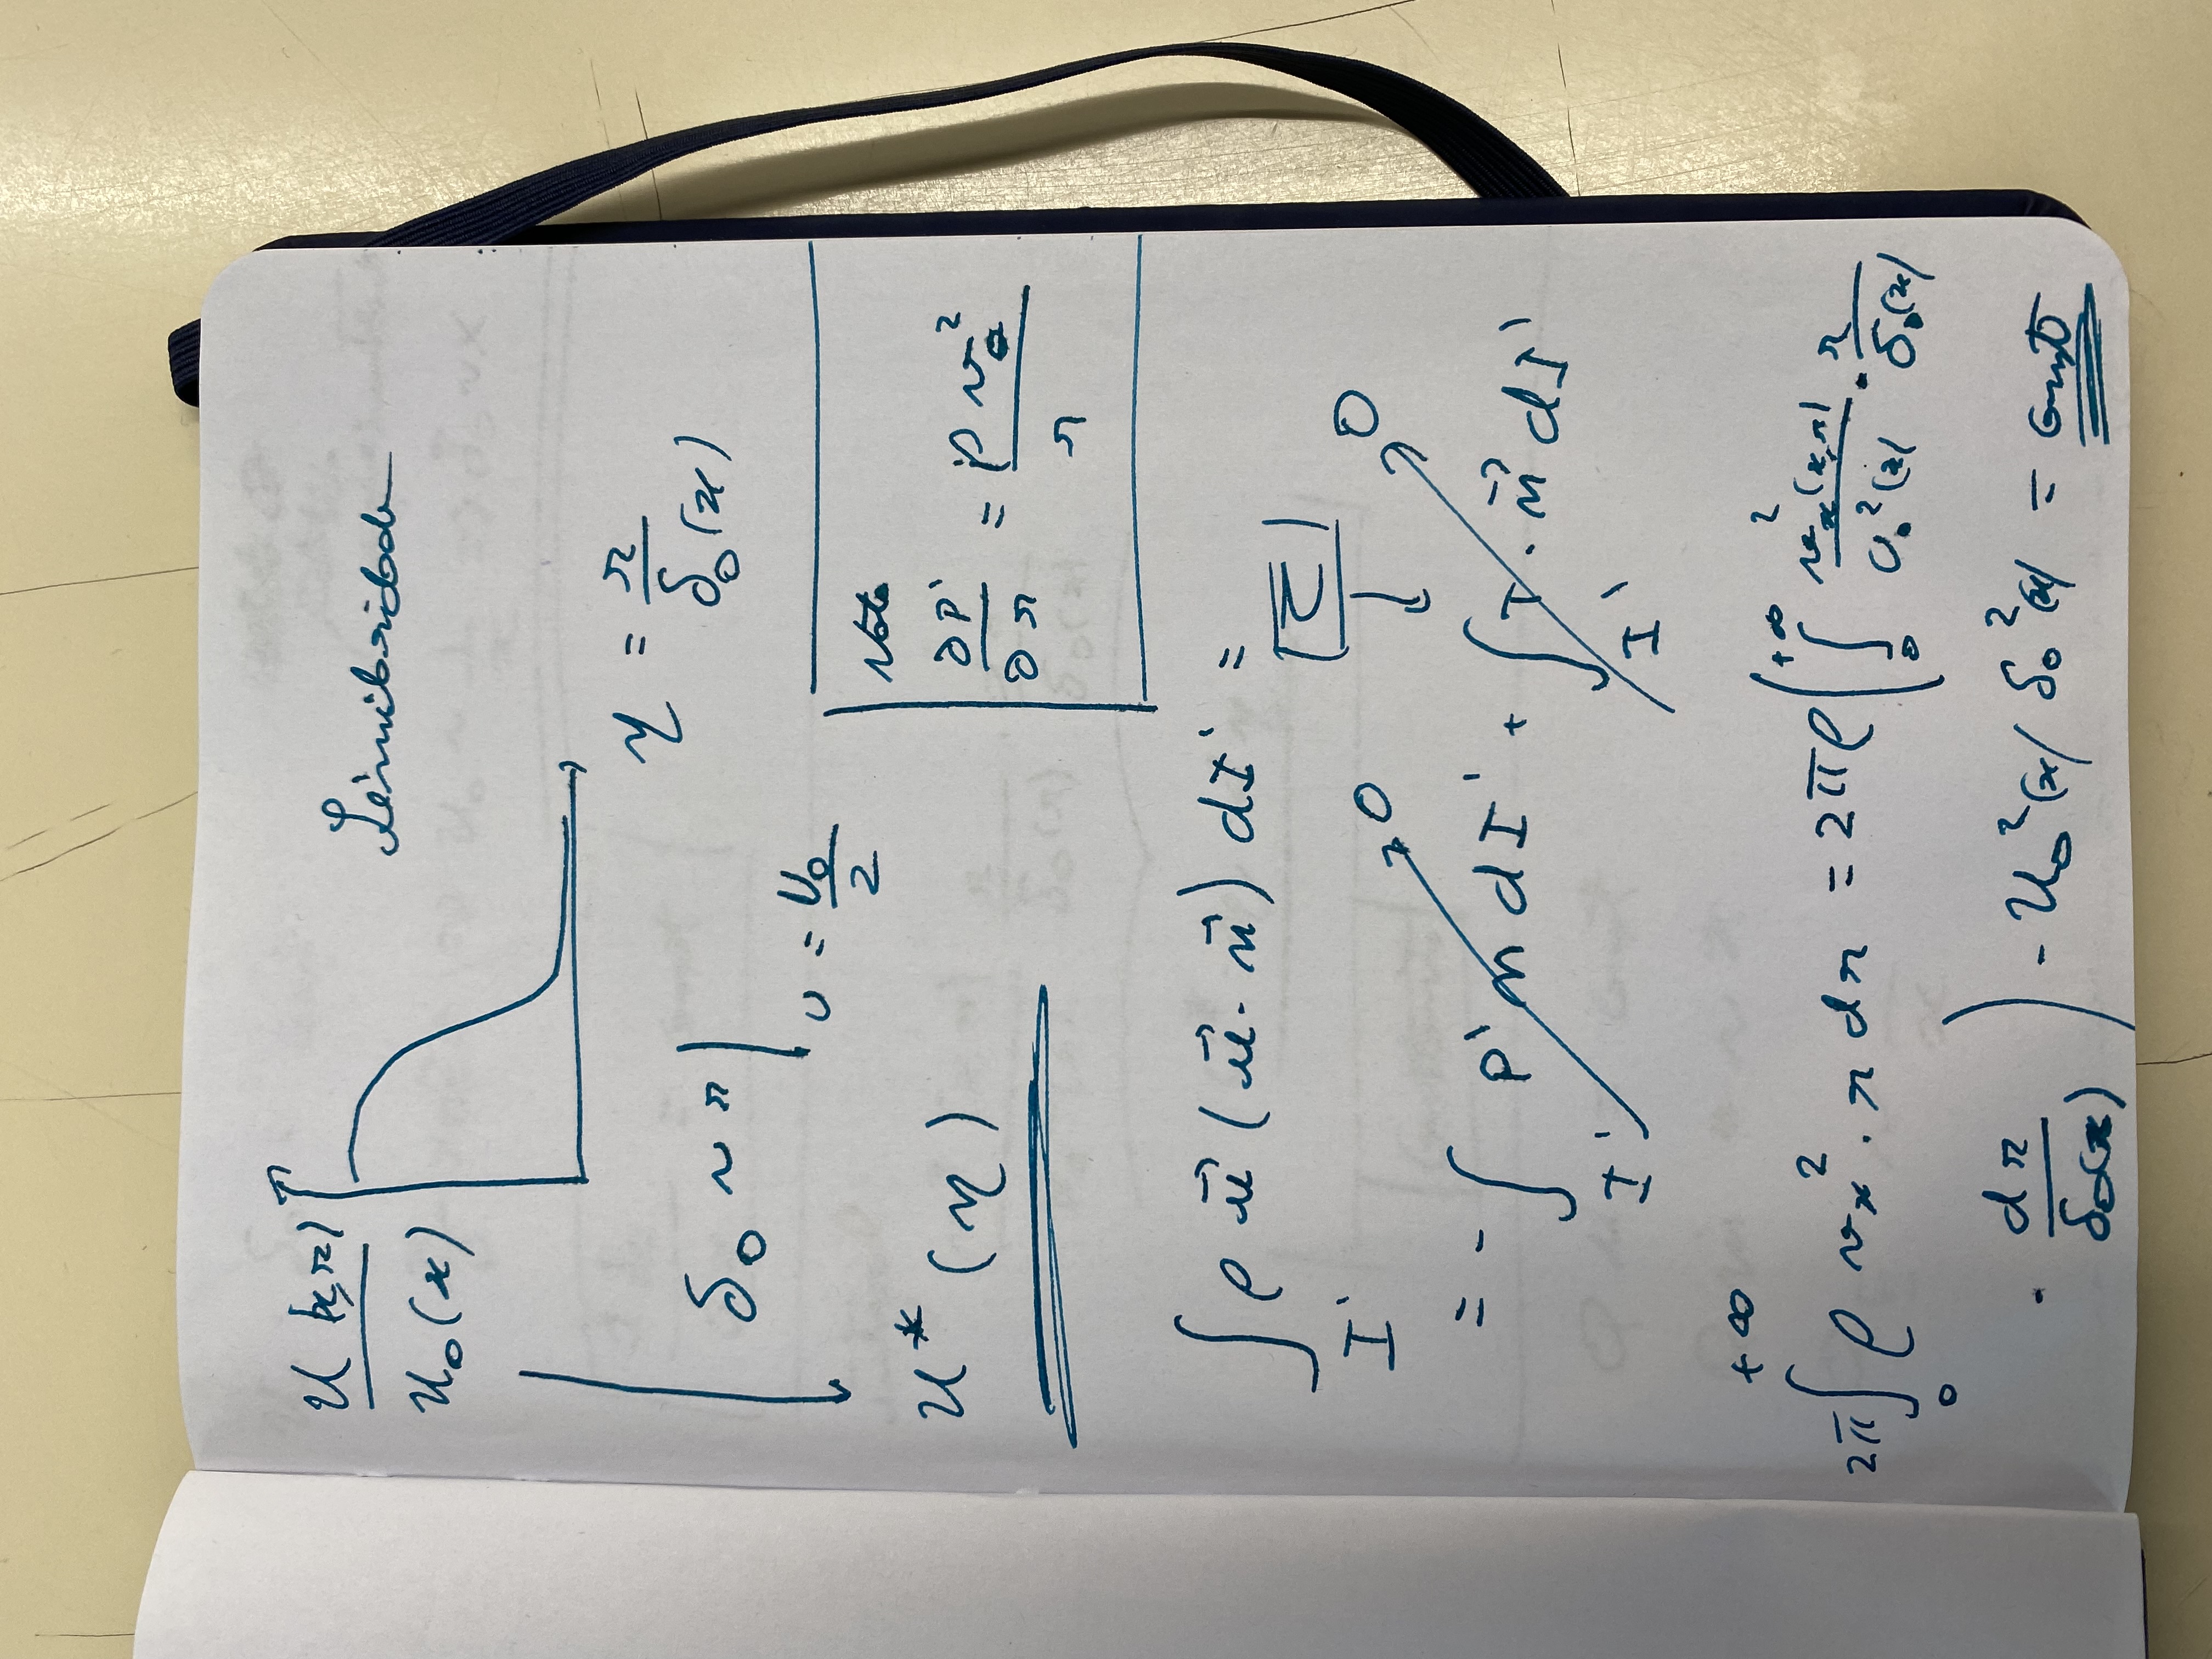 u (x,r)
u₀(x)
η = r / δ₀(x)
δ₀ ~ r | u = U₀ / 2
u* (η)
Nota
∂P' / ∂r = ρ v_θ² / r
∫_I' ρ u⃗ (u⃗ · n⃗) dI' =
|τ̄|
= - ∫_I' P' n dI' → 0 + ∫_I' τ · n⃗ dI' → 0
2π ∫₀^{+∞} ρ v_x² · r dr = 2πρ ( ∫₀^{+∞} v_x²(x,r) / U₀²(x) · r / δ₀(x)
· dr / δ₀(x) ) · U₀²(x) δ₀²(x) = const